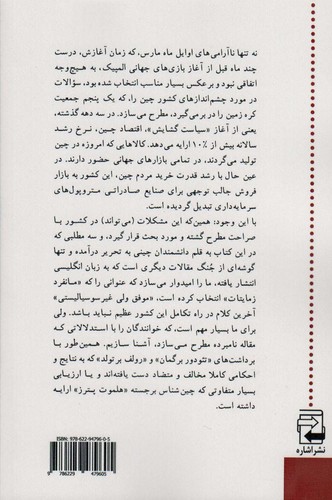 نه تنها ناآرامی‌های اوایل ماه مارس، که زمان آغازش، درست
چند ماه قبل از آغاز بازی‌های جهانی المپیک، به هیچ‌وجه
اتفاقی نبود و برعکس بسیار مناسب انتخاب شده بود، سؤالات
در مورد چشم‌اندازهای کشور چین را، که یک پنجم جمعیت
کره زمین را در برمی‌گیرد، مطرح می سازد. در سه دهه گذشته،
یعنی از آغاز «سیاست گشایش»، اقتصاد چین، نرخ رشد
سالانه بیش از ۱۰٪ ارایه می‌دهد. کالاهایی که امروزه در چین
تولید می‌گردند، در تمامی بازارهای جهانی حضور دارند. در
عین حال با رشد قدرت خرید مردم چین، این کشور به بازار
فروش جالب توجهی برای صنایع صادراتی متروپول‌های
سرمایه‌داری تبدیل گردیده است.
با این وجود: همین‌که این مشکلات (می‌تواند) در کشور با
صراحت مطرح گشته و مورد بحث قرار گیرد، و سه مطلبی که
در این کتاب به قلم دانشمندان چینی به تحریر درآمده و تنها
گوشه‌ای از جُنگ مقالات دیگری است که به زبان انگلیسی
انتشار یافته، ما را امیدوار می‌سازد که عنوانی را که «مانفرد
زمایتات» انتخاب کرده است، «موفق ولی غیرسوسیالیستی»
آخرین کلام در راه تکامل این کشور عظیم نباید باشد. ولی
برای ما بسیار مهم است، که خوانندگان را با استدلالاتی که
مقاله نامبرده مطرح می‌سازد، آشنا سازیم. همین‌طور با
برداشت‌های «تئودور برگمان» و «رولف برتولد» که به نتایج و
احکامی کاملا مخالف و متضاد دست یافته‌اند و یا ارزیابی
بسیار متفاوتی که چین‌شناس برجسته «هلموت پترز» ارایه
داشته است.
نشر اشاره
ISBN: 978-622-94796-0-5
9 786229 479605